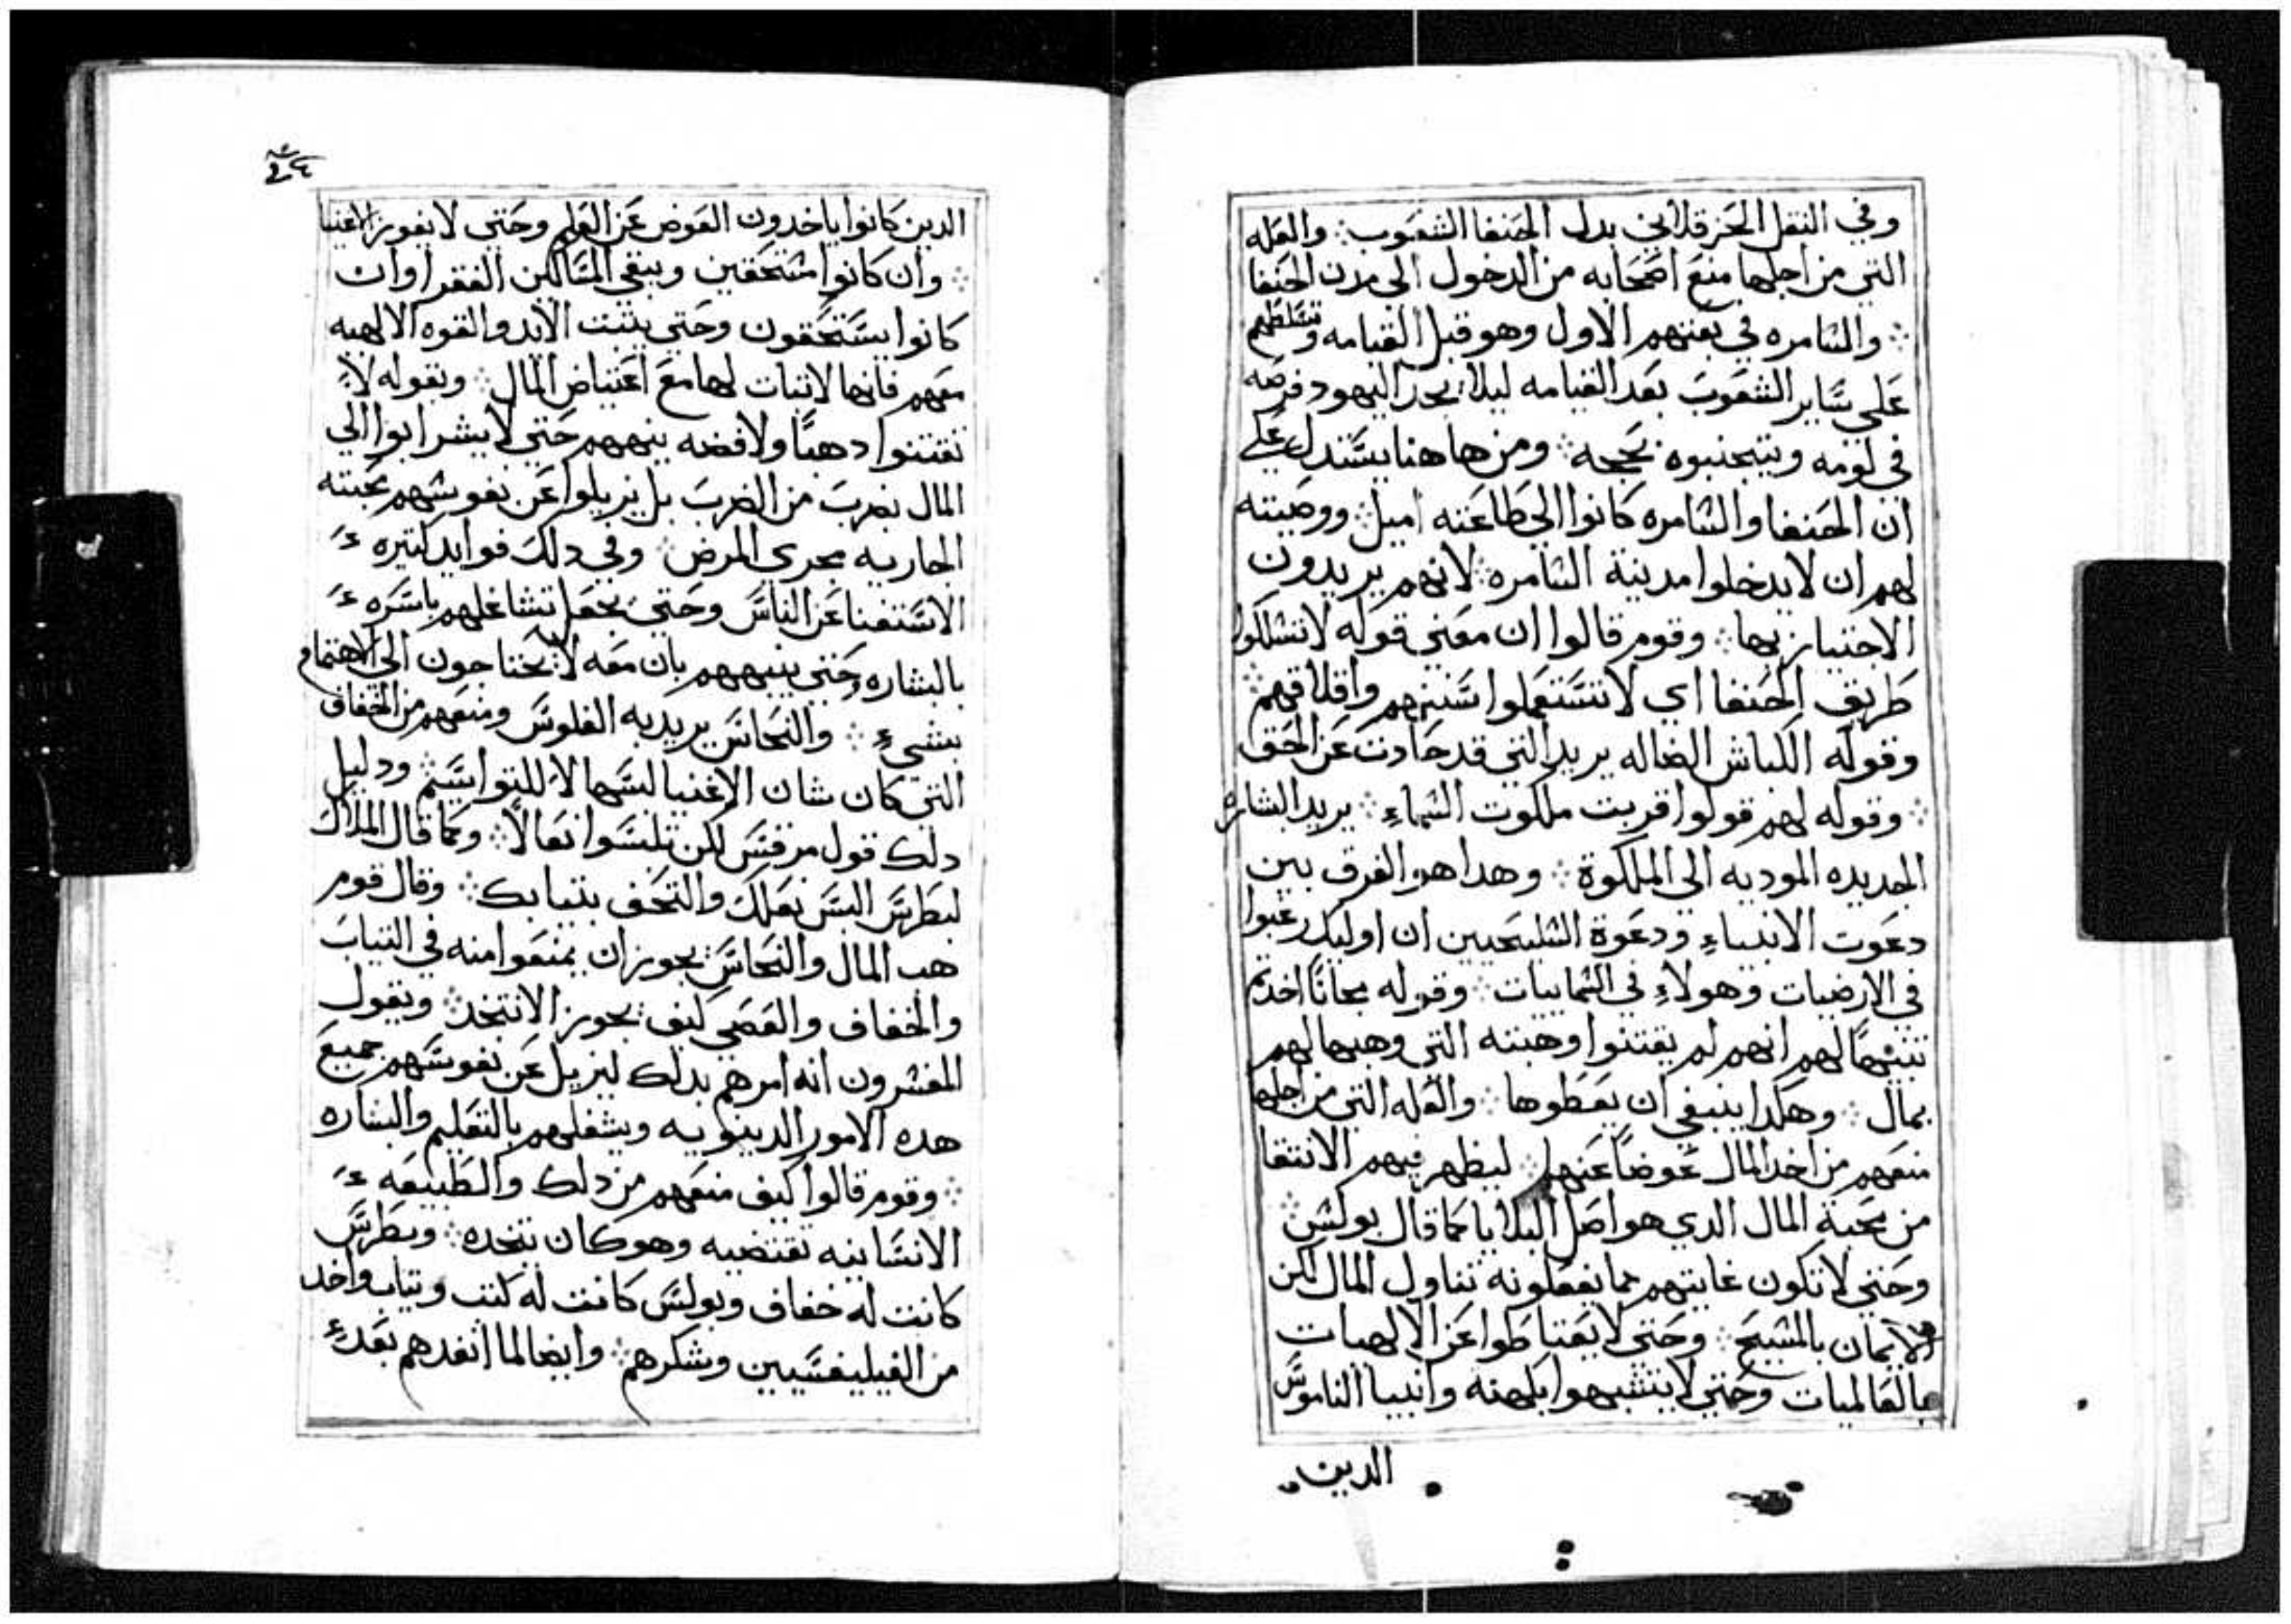 وفي النقل الحرقلاني بدل الحنفا الشعوب ؞ والعله
التي من اجلها منع اصحابه من الدخول الى مدن الحنفا
؞ والسامره في بعثهم الاول وهو قبل القيامه وتسلطهم
علي ساير الشعوب بعد القيامه ليلا يجد اليهود فرصه
في لومه ويتجنبوه بحجه ؞ ومن هاهنا يستدل علي
ان الحنفا والسامره كانوا الى طاعته اميل ؞ ووصيته
لهم ان لا يدخلوا مدينة السامره ؞ لانهم يريدون
الاجتياز بها ؞ وقوم قالوا ان معني قوله لا تسلكوا
طريق الحنفا اي لا تستعملوا سننهم واخلاقهم ؞
وقوله الكباش الضاله يريد التي قد حادت عن الحق
؞ وقوله لهم قولوا قربت ملكوت السماء ؞ يريد البشاره
الجديده الموديه الى الملكوة ؞ وهدا هو الفرق بين
دعوت الانبياء ودعوة السليحيين ان اوليك رغبوا
في الارضيات وهولاء في السماييات ؞ وقوله مجانا اخدتم
تنبيهًا لهم انهم لم يقتنوا وهبته التي وهبها لهم
بمال ؞ وهكدا ينبغي ان يعطوها ؞ والعله التي من اجلها
منعهم من اخد المال عوضاً عنها ؞ ليظهر فيهم الانتقا
من محبة المال الدي هو اصل البلايا كما قال بولس ؞
وحتي لا تكون غايتهم مما يفعلونه تناول المال لكن
الايمان بالمسيح ؞ وحتي لا يعتاطوا عن الالهيات
بالعالميات وحتي لا يتشبهوا بكهنه وانبيا الناموس
الدين
الدين كانوا ياخدون العوض عن العلم وحتي لا يفوز الاغنيا
؞ وان كانوا مستحقين ويبقي المساكين الفقرا وان
كانوا يستحقون وحتي يثبت الايد والقوه الالهيه
معهم فانها لا ثبات لها مع اعتياض المال ؞ وبقوله لا
تقتنوا دهبًا ولا فضه ينههم حتي لا يشرابوا الي
المال بضرب من الضرب بل يزيلوا عن نفوسهم محبته
الجاريه مجري المرض ؞ وفي دلك فوايد كثيره
الاستغنا عن الناس وحتي يجعل تشاغلهم باسره
بالبشاره وحتي ينبههم بان معه لا يحتاجون الى الاهتمام
بشيء ؞ والنحاس يريد به الفلوس ومنعهم من الخفاف
التي كان شان الاغنيا لبسها لا للتواسم ؞ ودليل
دلك قول مرقس لكن تلبسوا نعالاً ؞ وكما قال الملاك
لبطرس البس نعلك والتحف بثيابك ؞ وقال قوم
هب المال والنحاس يجوز ان يمنعوا منه في الثياب
والخفاف والعصي كيف يجوز الا تتخد ؞ ويقول
المفسرون انه امرهم بدلك ليزيل عن نفوسهم جميع
هده الامور الدينويه ويشغلهم بالتعليم والبشاره
؞ وقوم قالوا كيف منعهم من دلك والطبيعه
الانسانيه تقتضيه وهو كان يتخده ؞ وبطرس
كانت له خفاف وبولس كانت له كتب وثياب واخد
من الفيليفسيين وشكرهم ؞ وايضا لما انفدهم بعد